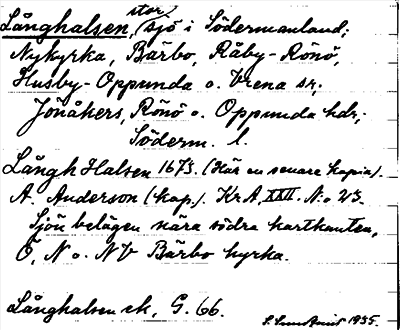 Långhalsen, stor sjö i Södermanland;
Nykyrka, Bärbo, Råby-Rönö,
Husby-Oppunda o. Vrena sn;
Jönåkers, Rönö o. Oppunda hdr;
Söderm. l.
Långh Halsen 1673. (Här en senare kopia).
A. Anderson (kop.). KrA XXII. No 23.
Sjön belägen nära södra kartkanten,
Ö, N o. NV Bärbo kyrka.
Långhalsen ek, G. 66.
1935.